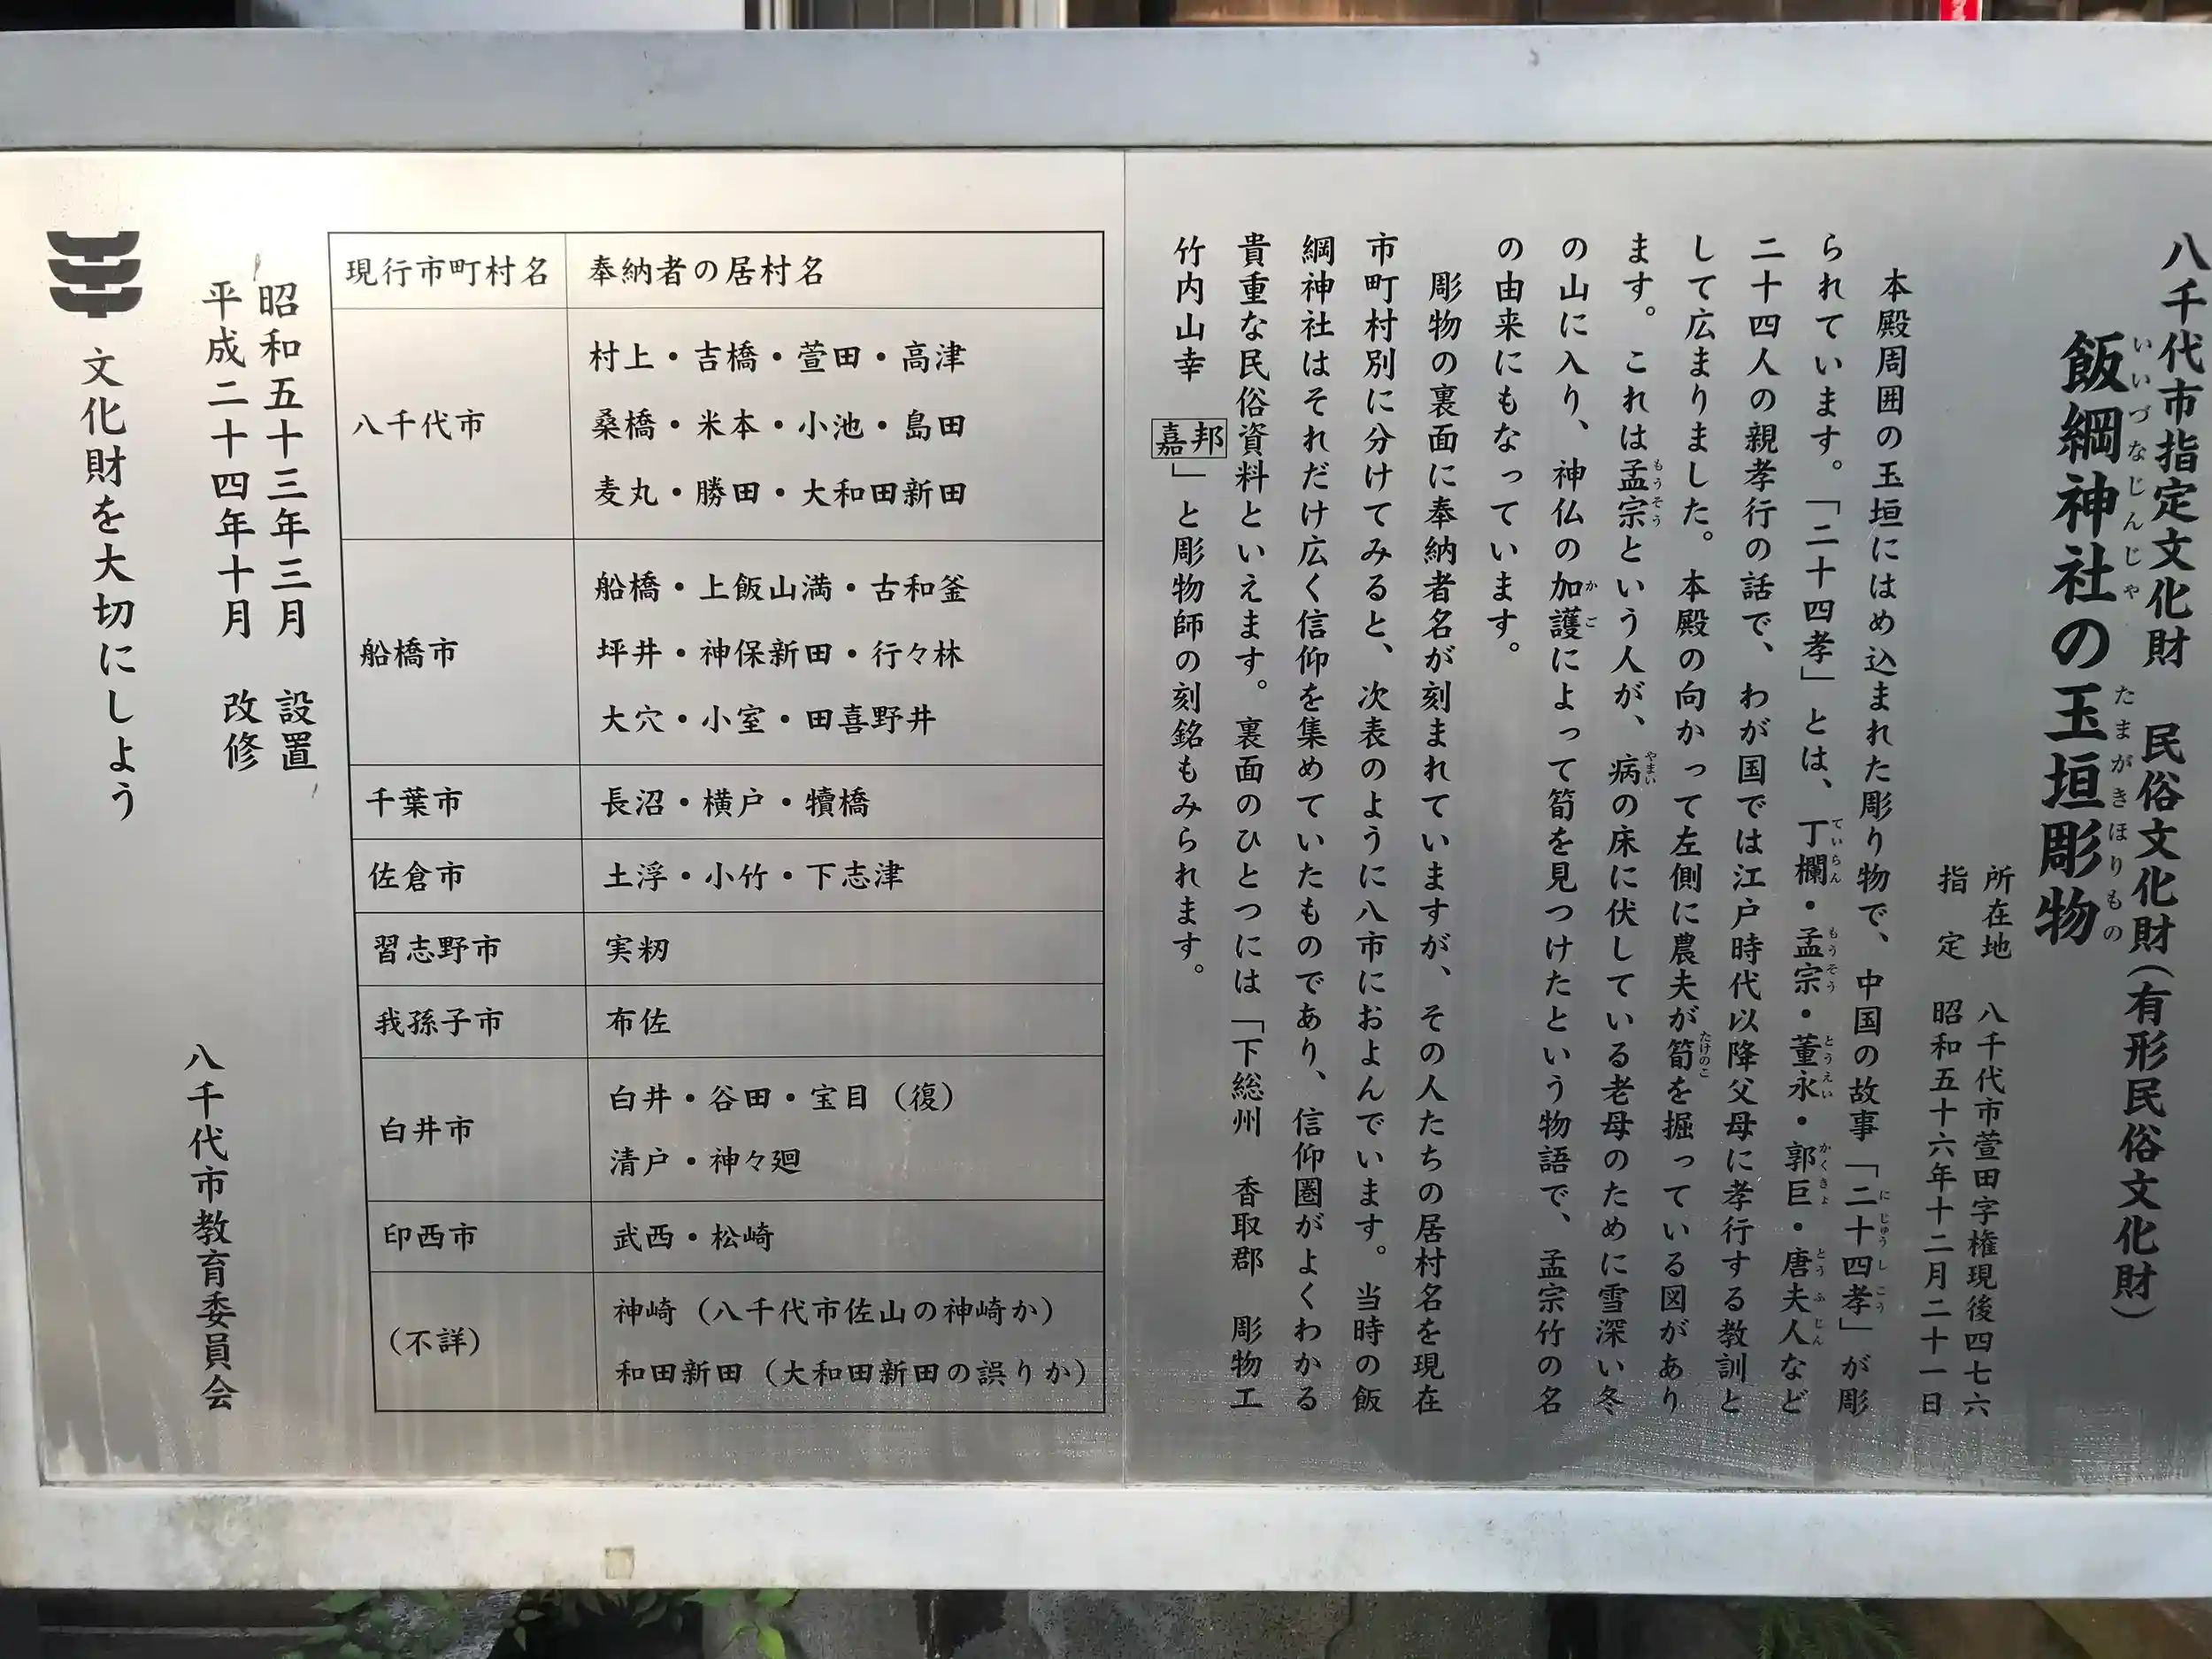 八千代市指定文化財　民俗文化財（有形民俗文化財）
飯綱神社の玉垣彫物
いいづなじんじゃ　たまがきほりもの
所在地　八千代市萱田字権現後四七六
指　定　昭和五十六年十二月二十一日
本殿周囲の玉垣にはめ込まれた彫り物で、中国の故事「二十四孝」が彫
にじゅうしこう
られています。「二十四孝」とは、丁欄・孟宗・董永・郭巨・唐夫人など
ていらん　もうそう　とうえい　かくきょ　とうふじん
二十四人の親孝行の話で、わが国では江戸時代以降父母に孝行する教訓と
して広まりました。本殿の向かって左側に農夫が筍を掘っている図があり
たけのこ
ます。これは孟宗という人が、病の床に伏している老母のために雪深い冬
もうそう　やまい
の山に入り、神仏の加護によって筍を見つけたという物語で、孟宗竹の名
かご
の由来にもなっています。
彫物の裏面に奉納者名が刻まれていますが、その人たちの居村名を現在
市町村別に分けてみると、次表のように八市におよんでいます。当時の飯
綱神社はそれだけ広く信仰を集めていたものであり、信仰圏がよくわかる
貴重な民俗資料といえます。裏面のひとつには「下総州　香取郡　彫物工
竹内山幸　嘉邦」と彫物師の刻銘もみられます。
現行市町村名　奉納者の居村名
八千代市　村上・吉橋・萱田・高津
桑橋・米本・小池・島田
麦丸・勝田・大和田新田
船橋市　船橋・上飯山満・古和釜
坪井・神保新田・行々林
大穴・小室・田喜野井
千葉市　長沼・横戸・犢橋
佐倉市　土浮・小竹・下志津
習志野市　実籾
我孫子市　布佐
白井市　白井・谷田・宝目（復）
清戸・神々廻
印西市　武西・松崎
（不詳）　神崎（八千代市佐山の神崎か）
和田新田（大和田新田の誤りか）
昭和五十三年三月　設置
平成二十四年十月　改修
八千代市教育委員会
文化財を大切にしよう